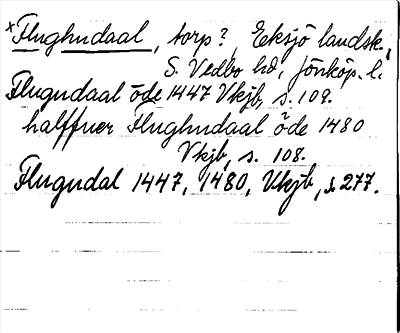 *Flughudaal, torp?, Eksjö landsk.,
S. Vedbo hd, Jönköp. l.
Flugudaal öde 1447 Vkjb, s. 109.
halffuer Flughudaal öde 1480
Vkjb, s. 108.
Flugudal 1447, 1480, Vkjb, s. 277.